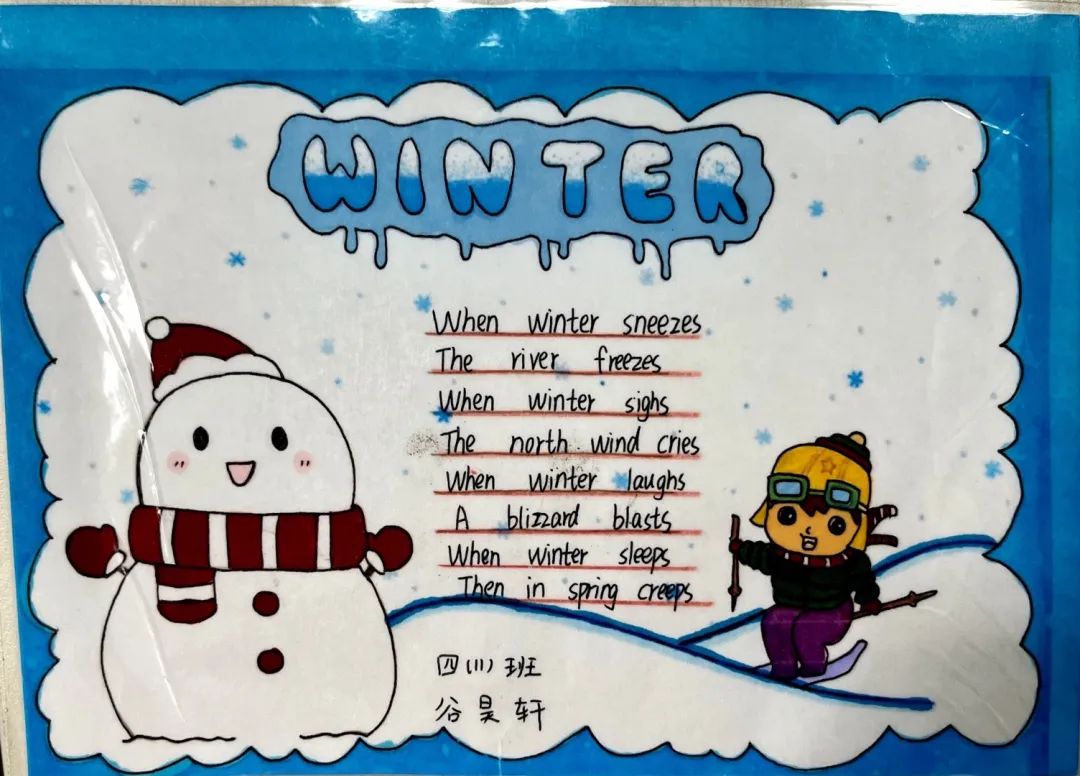 WINTER
When winter sneezes
The river freezes
When winter sighs
The north wind cries
When winter laughs
A blizzard blasts
When winter sleeps
Then in spring creeps
四(1)班
谷昊轩